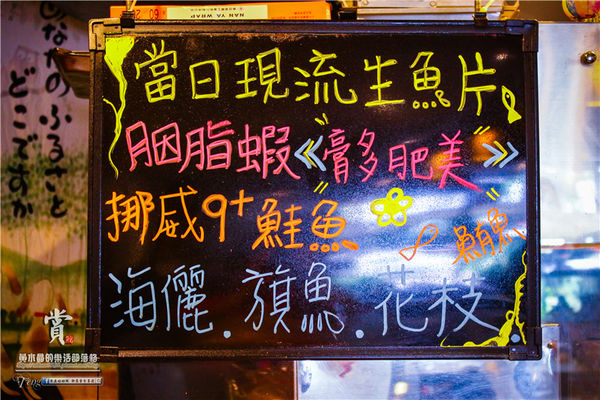 NAN YA WRAP
當日現流生魚片
胭脂蝦《膏多肥美》
挪威9+鮭魚
∞鮪魚
海儷.旗魚.花枝
みなかのふるさと
どこですか
賞
黃水晶的樂活部落格